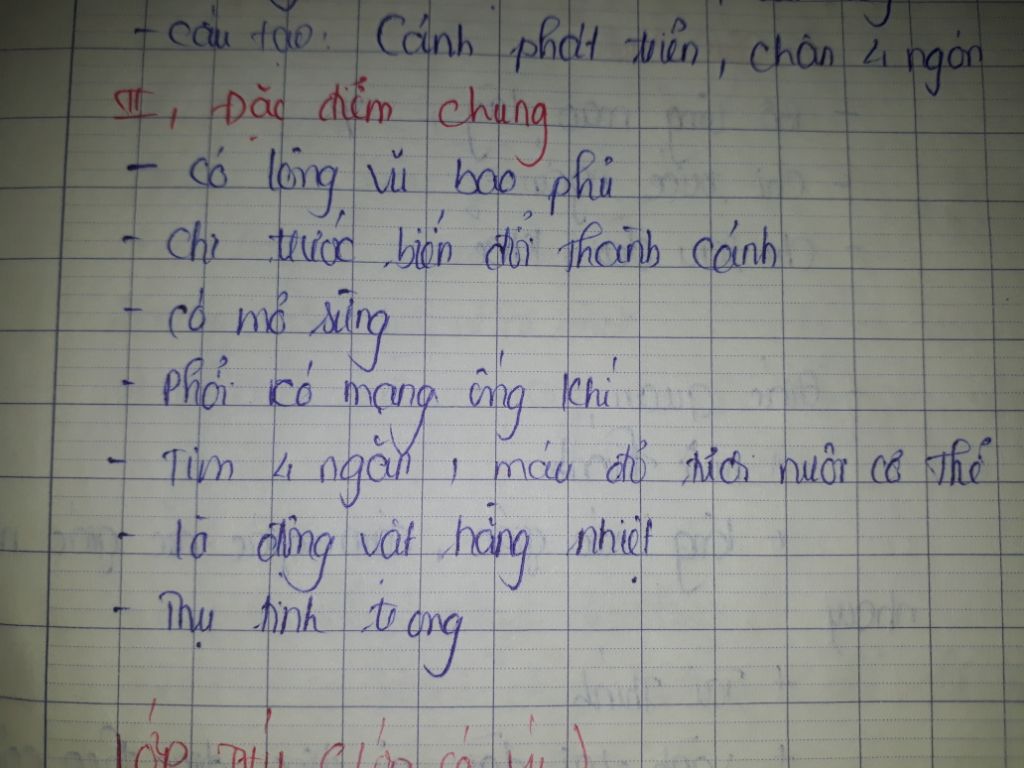 - Cấu tạo: Cánh phát triển, chân 4 ngón
III, Đặc điểm chung
- có lông vũ bao phủ
- chi trước biến đổi thành cánh
- có mỏ sừng
- phổi có mạng ống khí
- Tim 4 ngăn, máu đỏ tươi nuôi cơ thể
- là động vật hằng nhiệt
- Thụ tinh trong